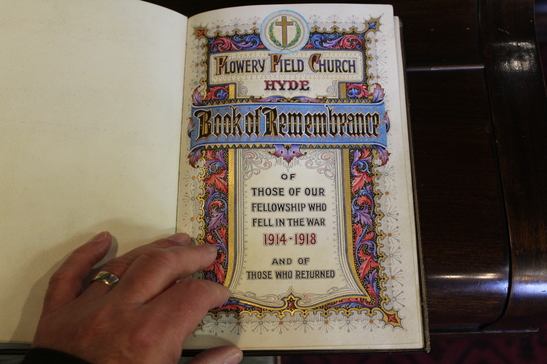 Flowery Field Church
HYDE
Book of Remembrance
OF
THOSE OF OUR
FELLOWSHIP WHO
FELL IN THE WAR
1914-1918
AND OF
THOSE WHO RETURNED